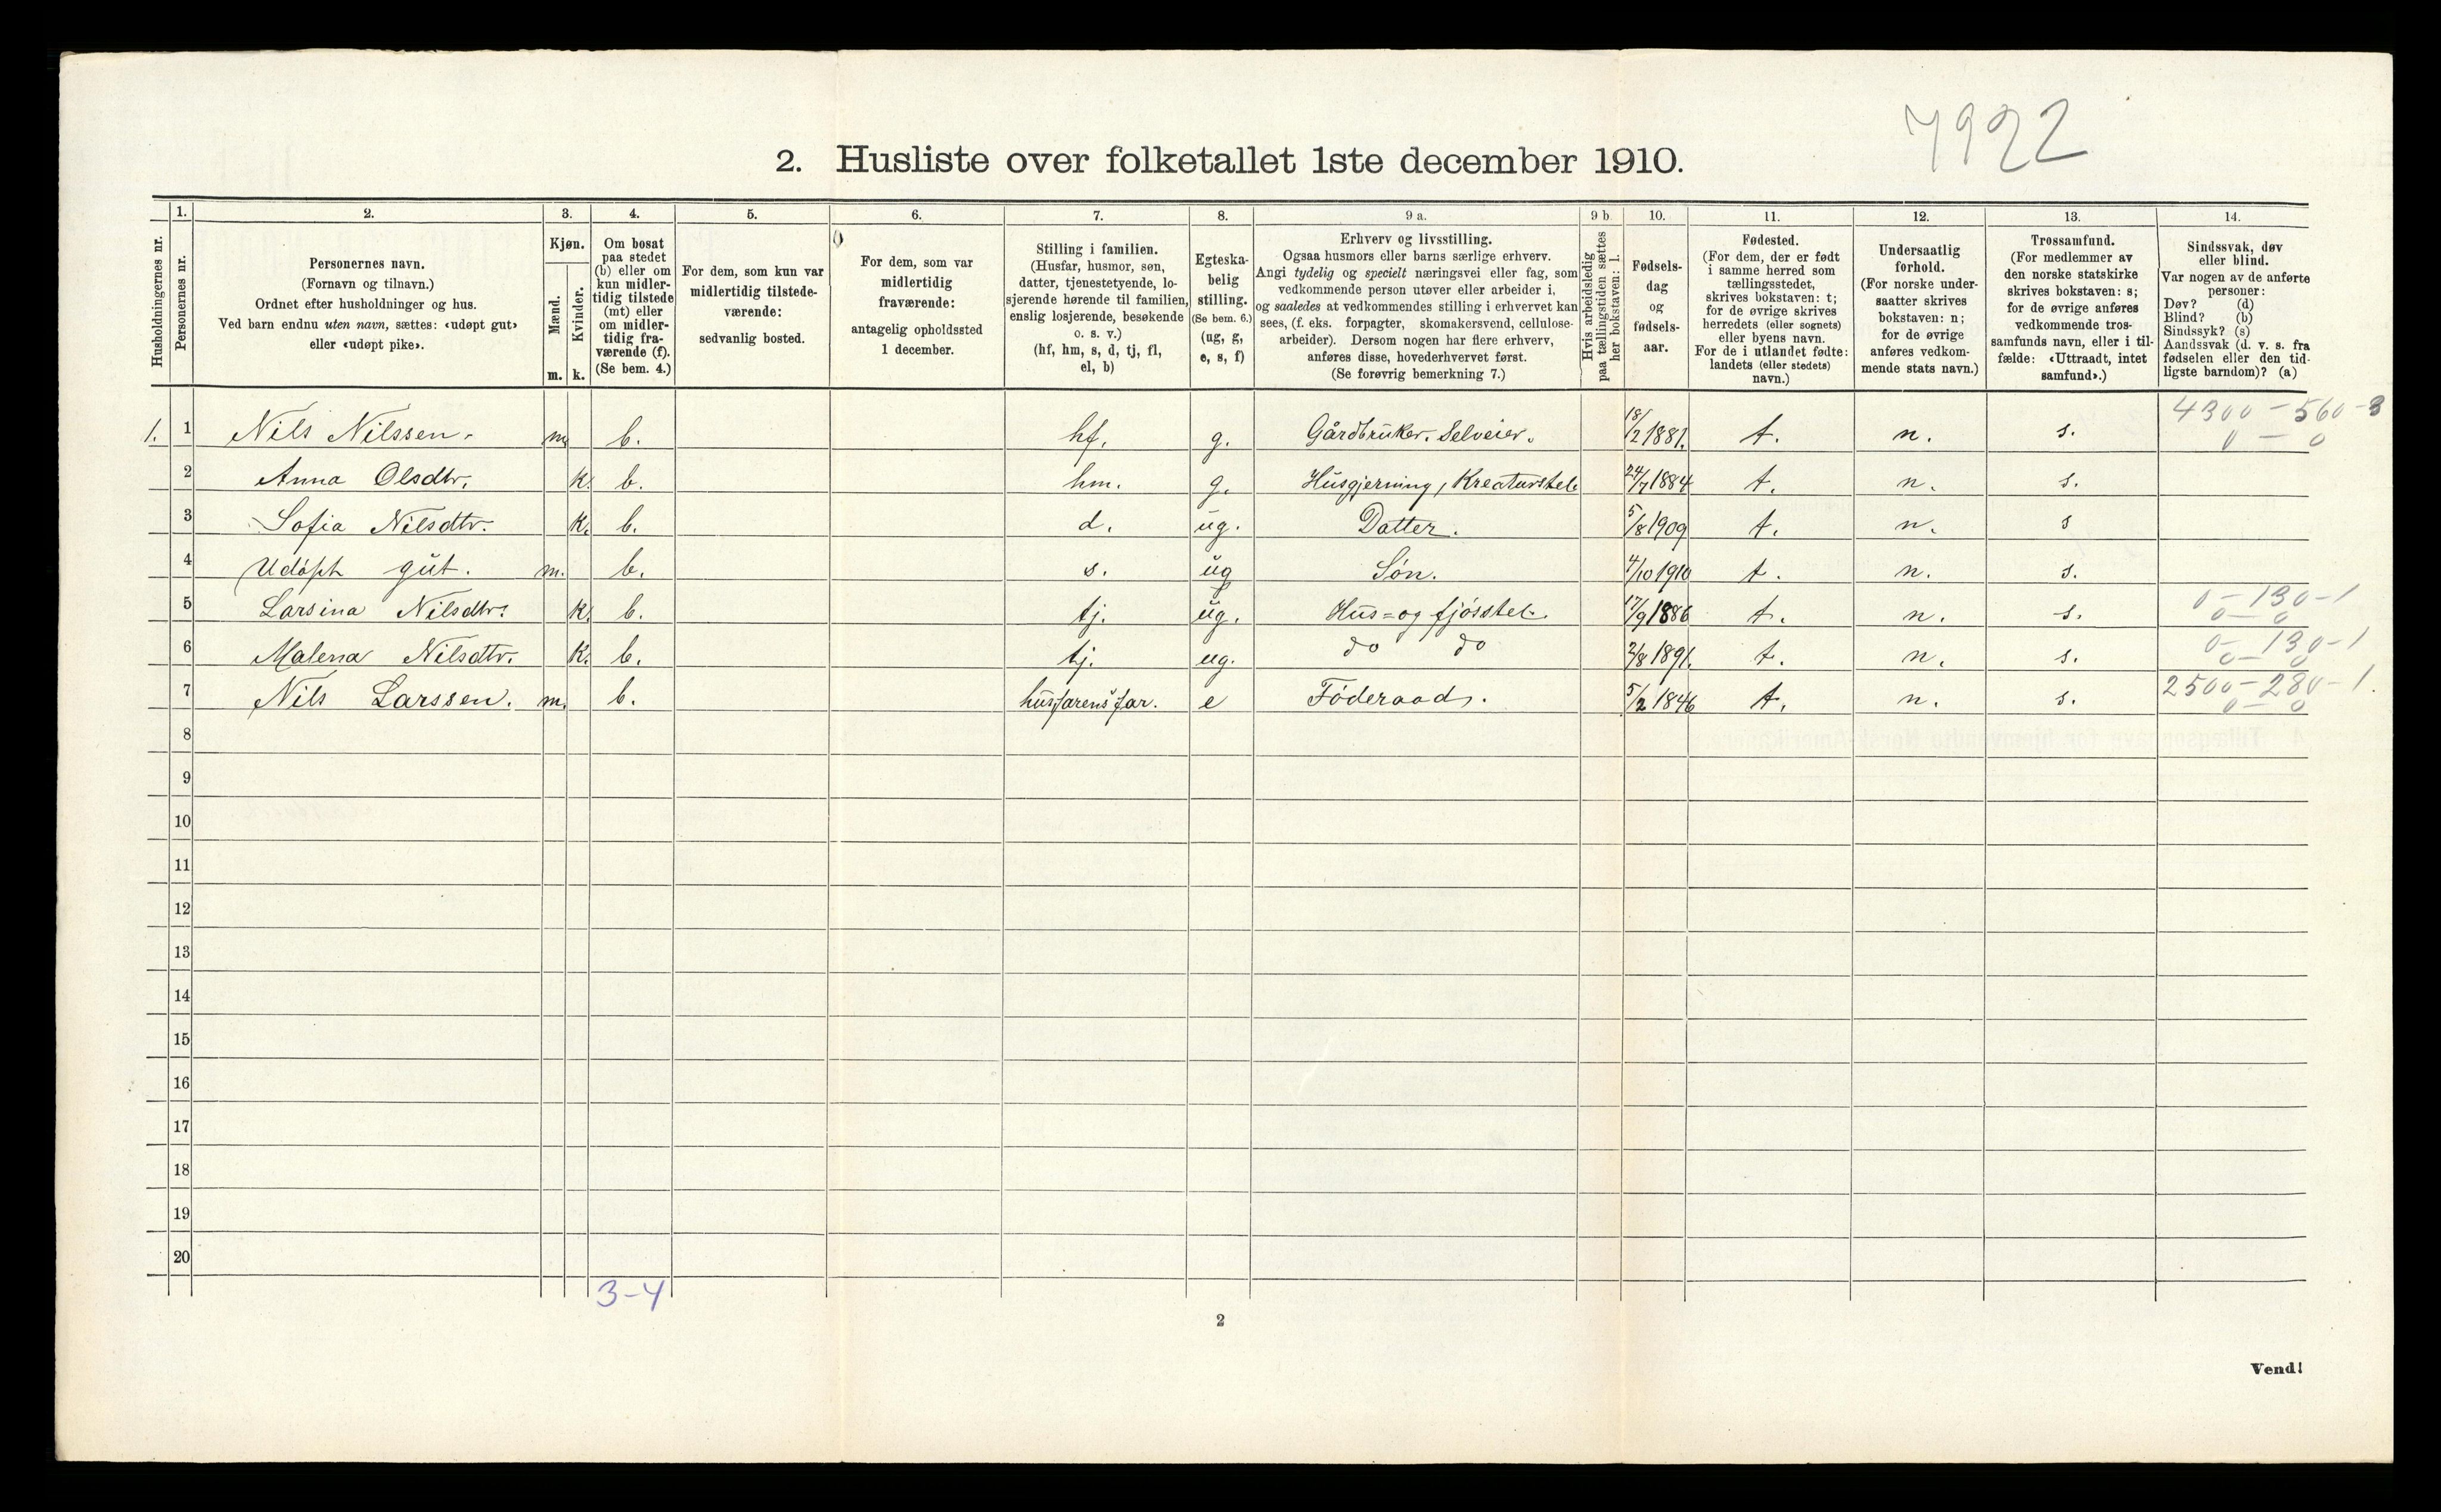 7922
2. Husliste over folketallet 1ste december 1910.
Husholdningernes nr.
1.
Personernes nr.
2.
Personernes navn.
(Fornavn og tilnavn.)
Ordnet efter husholdninger og hus.
Ved barn endnu uten navn, sættes: «udøpt gut»
eller «udøpt pike».
3.
Kjøn.
Mænd.
Kvinder.
m. k.
4.
Om bosat
paa stedet
(b) eller om
kun midler-
tidig tilstede
(mt) eller
om midler-
tidig fra-
værende (f).
(Se bem. 4.)
5.
For dem, som kun var
midlertidig tilstede-
værende:
sedvanlig bosted.
6.
For dem, som var
midlertidig
fraværende:
antagelig opholdssted
1 december.
7.
Stilling i familien.
(Husfar, husmor, søn,
datter, tjenestetyende, lo-
sjerende hørende til familien,
enslig losjerende, besøkende
o. s. v.)
(hf, hm, s, d, tj, fl,
el, b)
8.
Egteska-
belig
stilling.
(Se bem. 6.)
(ug, g,
e, s, f)
9 a.
Erhverv og livsstilling.
Ogsaa husmors eller barns særlige erhverv.
Angi tydelig og specielt næringsvei eller fag, som
vedkommende person utøver eller arbeider i,
og saaledes at vedkommendes stilling i erhvervet kan
sees, (f. eks. forpagter, skomakersvend, cellulose-
arbeider). Dersom nogen har flere erhverv,
anføres disse, hovederhvervet først.
(Se forøvrig bemerkning 7.)
9 b
Hvis arbeidsledig
paa tællingstiden sættes
her bokstaven: l.
10.
Fødsels-
dag
og
fødsels-
aar.
11.
Fødested.
(For dem, der er født
i samme herred som
tællingsstedet,
skrives bokstaven: t;
for de øvrige skrives
herredets (eller sognets)
eller byens navn.
For de i utlandet fødte:
landets (eller stedets)
navn.)
12.
Undersaatlig
forhold.
(For norske under-
saatter skrives
bokstaven: n;
for de øvrige
anføres vedkom-
mende stats navn.)
13.
Trossamfund.
(For medlemmer av
den norske statskirke
skrives bokstaven: s;
for de øvrige anføres
vedkommende tros-
samfunds navn, eller i til-
fælde: «Uttraadt, intet
samfund».)
14.
Sindssvak, døv
eller blind.
Var nogen av de anførte
personer:
Døv? (d)
Blind? (b)
Sindssyk? (s)
Aandssvak (d. v. s. fra
fødselen eller den tid-
ligste barndom)? (a)
1. 1 Nils Nilssen. m. b. hf. g. Gårdbrüker. Selveier. 18/2 1881. t. n. s. 4300 – 560 – 3
0 – 0
2 Anna Olsdtr. K. b. hm. g. Hüsgjerning, Kreaturstel. 24/7 1884 t. n. s.
3 Sofia Nilsdtr. K. b. d. üg. Datter. 5/8 1909 t. n. s
4 Udøpt güt. m. b. s. üg Søn. 4/10 1910 t. n. s.
5 Larsina Nilsdtr. K. b. tj. üg. Hüs= og fjøsstel. 17/9 1886 t. n. s. 0 – 130 – 1
0 – 0
6 Malena Nilsdtr. K. b. tj. ug. do do 2/8 1891. t. n. s. 0 – 130 – 1
0 – 0
7 Nils Larssen. m. b. hüsfarens far. e Føderaad. 5/2 1846 t. n. s. 2500 – 280 – 1.
0 – 0
8
9
10
11
12
13
14
15
16
17
18
19
20
3–4
2
Vend!